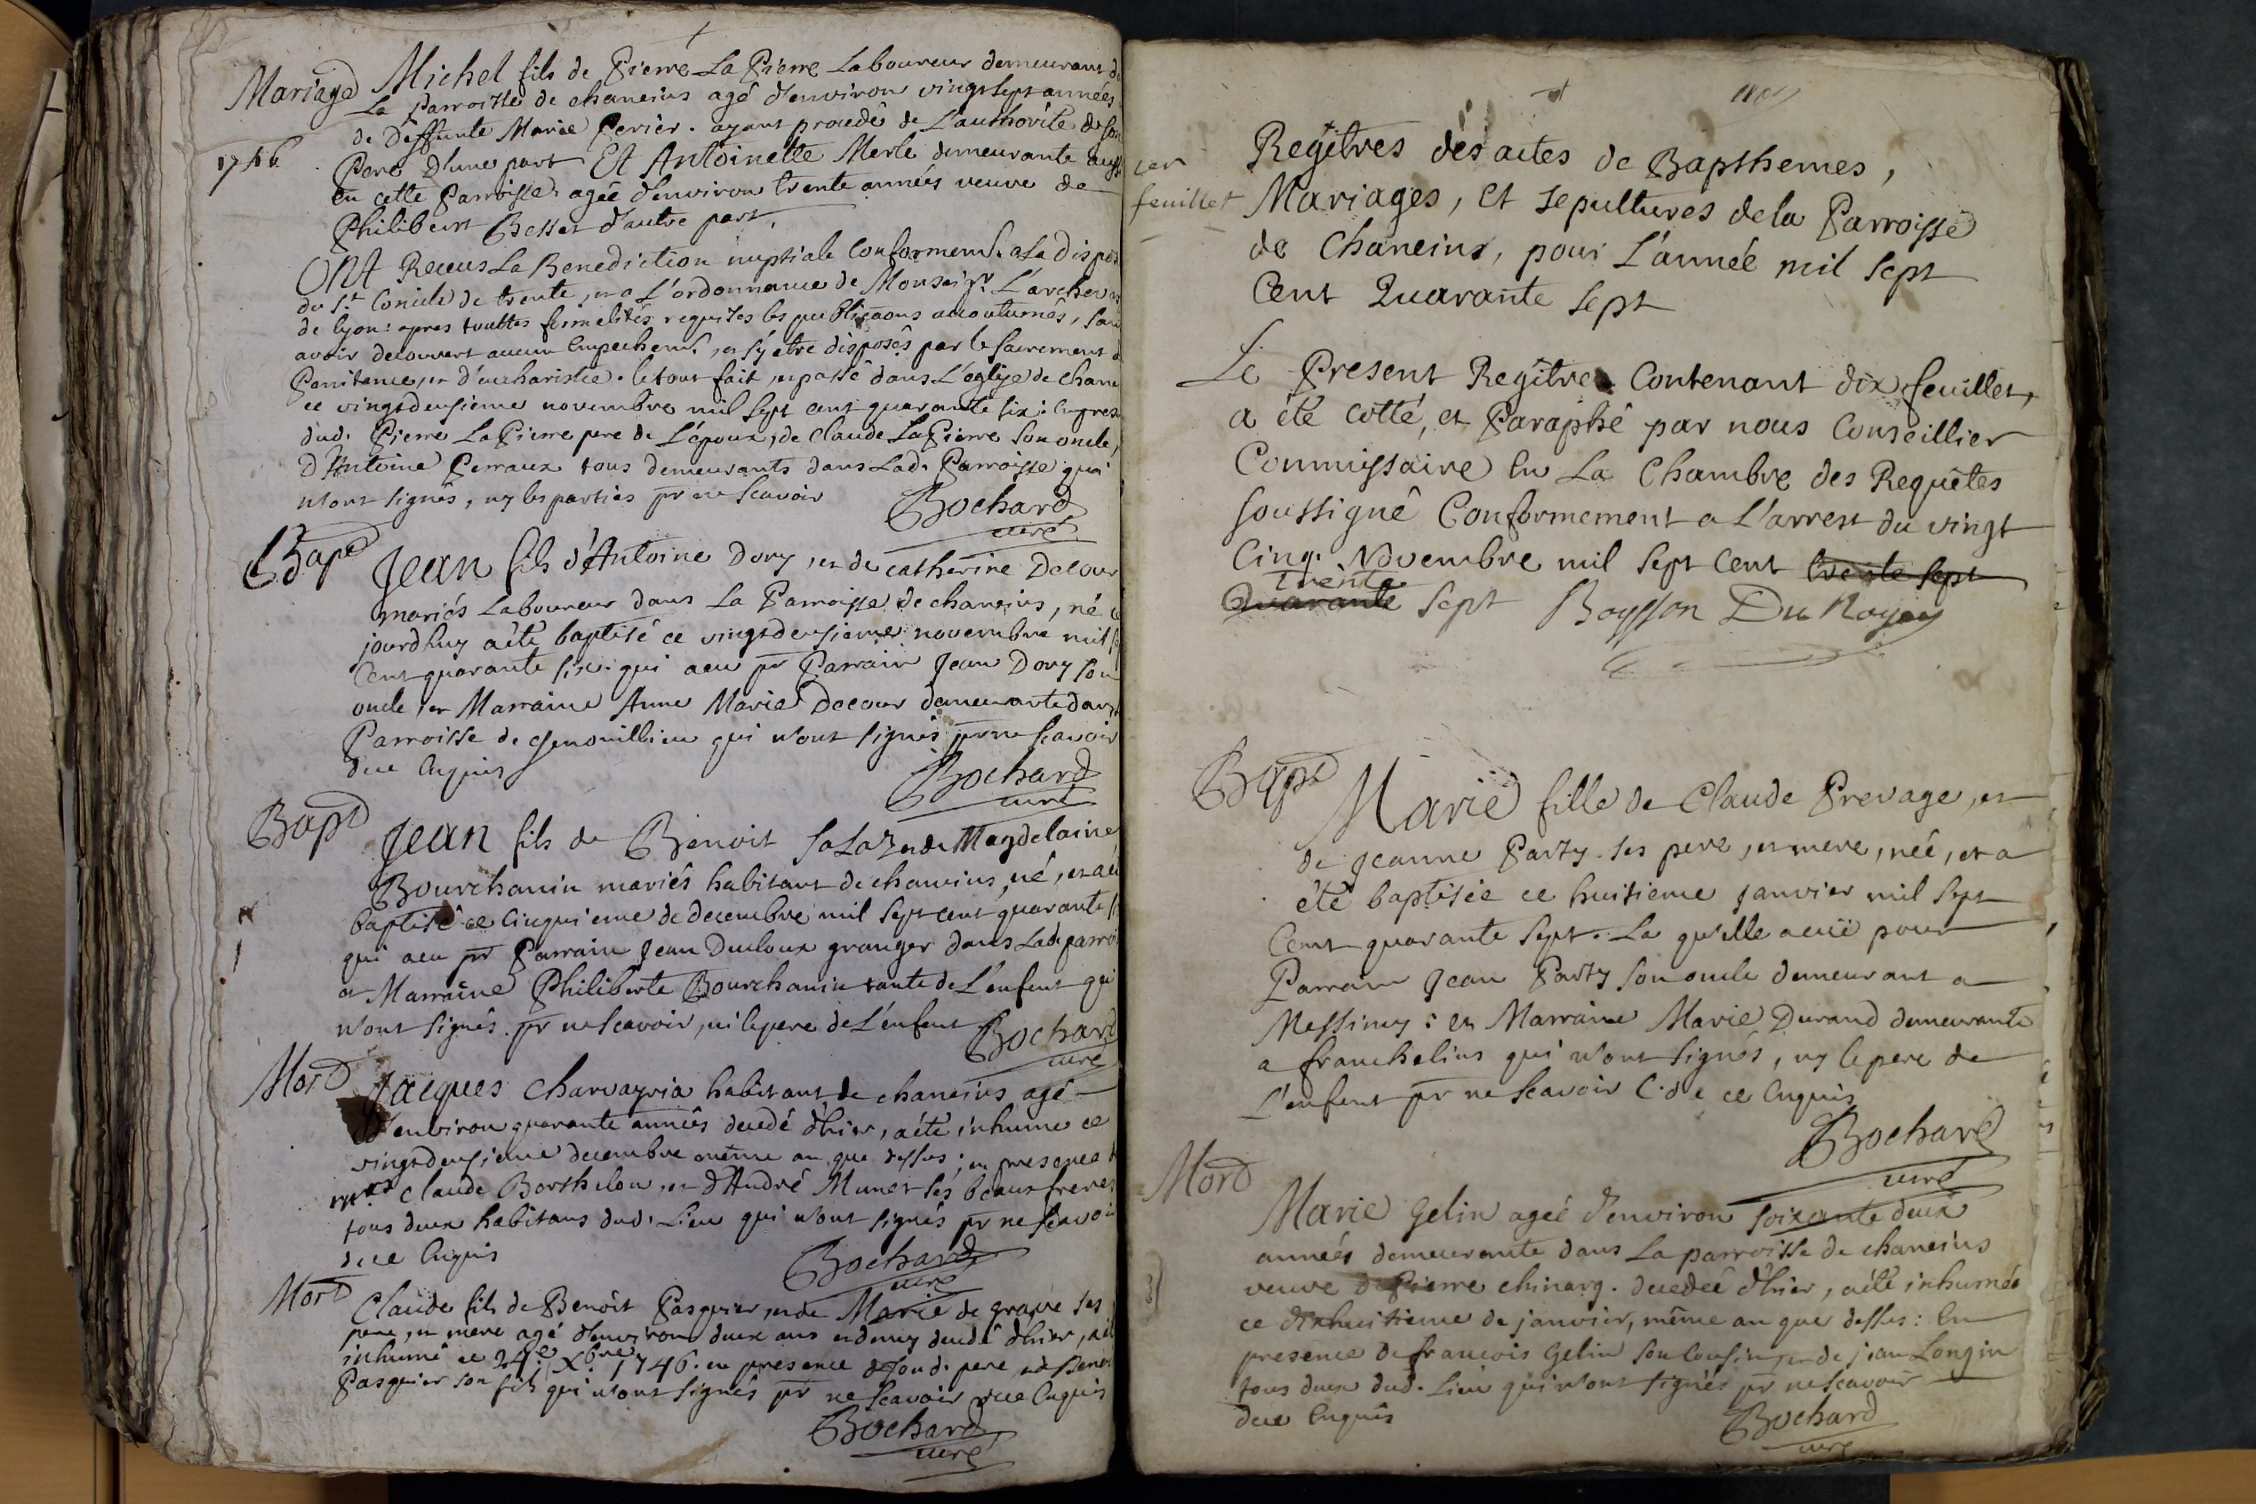 Mariage
1746
Michel fils de Pierre La Pierre Laboureur demeurant d
La Parroisse de chaneins agé d'environ vingt sept années
de Deffunte Marie Perier. ayant procedé de L'authorité de son
Pere d'une part Et Antoinette Merle demeurante aussy
en cette Parroisse agée d'environ trente années veuve de
Philibert Besset d'autre part,
Ont Receus La Benediction nuptiale Conformemt. a La dispos
du St Concile de trente, et a L'ordonnance de Monseigr. L'archev
de lyon: apres touttes formalités requises les publicaons accoutumés, sans
avoir decouvert aucun Empechemt. et s'y etre disposés par le sacrement d
Penitence, et d'eucharistie. le tout fait, et passé dans L'eglise de chane
ce vingtdeusieme novembre mil sept cent quarante six: en pres
dud. Pierre La Pierre pere de L'époux, de Claude La Pierre son oncle,
D'Antoine Perraux tous demeurants dans Lad. Parroisse qui
n'ont signés, ny les parties pr ne scavoir
Bochard
curé
Bapt
Jean fils d'Antoine Dory, et de catherine Decour
mariés Laboureur dans La Parroisse de chaneins, né ce
jourd'huy a été baptisé ce vingtdeusieme novembre mil s
Cent quarante six. qui a eu pr Parrain Jean Dory son
oncle et Marraine Anne Marie Decour demeurante dans
Parroisse de Genouillieu qui n'ont signés pr ne scavoir
de ce Enquis
Bochard
curé
Bapt
Jean fils de Benoit Salaz et de Magdelaine
Bourchanin mariés habitant de chaneins, né, et a été
baptisé ce Cinquieme de decembre mil sept cent quarante s
qui a eu pr Parrain Jean Ducloux granger dans Lad. parro
et Marraine Philiberte Bourchanin tante de L'enfent qui
n'ont signés. pr ne scavoir, ni le pere de L'enfent
Bochard
curé
Mort
Jacques Charvayria habitant de chaneins agé
d'environ quarante années decedé d'hier, a été inhumé ce
vingtdeusieme decembre même an que dessus; en presence d
Claude Berthelon, et d'André Munet ses beaux freres
tous deux habitans dud. Lieu qui n'ont signés pr ne scavoir
de ce Enquis
Bochard
curé
Mort
Claude fils de Benoit Pasquier, et de Marie de grave ses
pere, et mere agé d'environ deux ans et demy decedé d'hier, a été
inhumé ce 24e. Xbre. 1746. en presence de sond. pere, et de Benoi
Pasquier son fils qui n'ont signés pr ne scavoir de ce Enquis
Bochard
curé
1er
feuillet
Regîtres des actes de Bapthemes,
Mariages, et sepultures de la Parroisse
de Chaneins, pour L'année mil sept
Cent Quarante sept
Le Present Regître Contenant dix feuillets,
a été cotté, et Paraphé par nous Conseillier
Commissaire En La Chambre des Requêtes
soussigné Conformement a L'arrest du vingt
Cinq. Novembre mil sept Cent trente sept
trente
Quarante sept Boysson Du Noyer
Bapt
Marie fille de Claude Prevage, et
de Jeanne Party. ses pere, et mere, née, et a
été baptisée ce huitieme janvier mil sept
Cent quarante sept. La qu'elle a eüe pour
Parrain Jean Party son oncle demeurant a
Messimy: et Marraine Marie Durand demeurante
a franchelins qui n'ont signés, ny le pere de
L'enfent pr ne scavoir C. de ce Enquis
Bochard
curé
Mort
Marie Gelin ageé d'environ soixante deux
années demeurante dans La parroisse de chaneins
veuve de Pierre chinarg. decedeé d'hier, a été inhumée
ce dixhuitieme de janvier, même an que dessus: En
presence de francois Gelin son Cousin, et de jean Longin
tous deux dud. Lieu qui n'ont signés pr ne scavoir
de ce Enquis
Bochard
curé